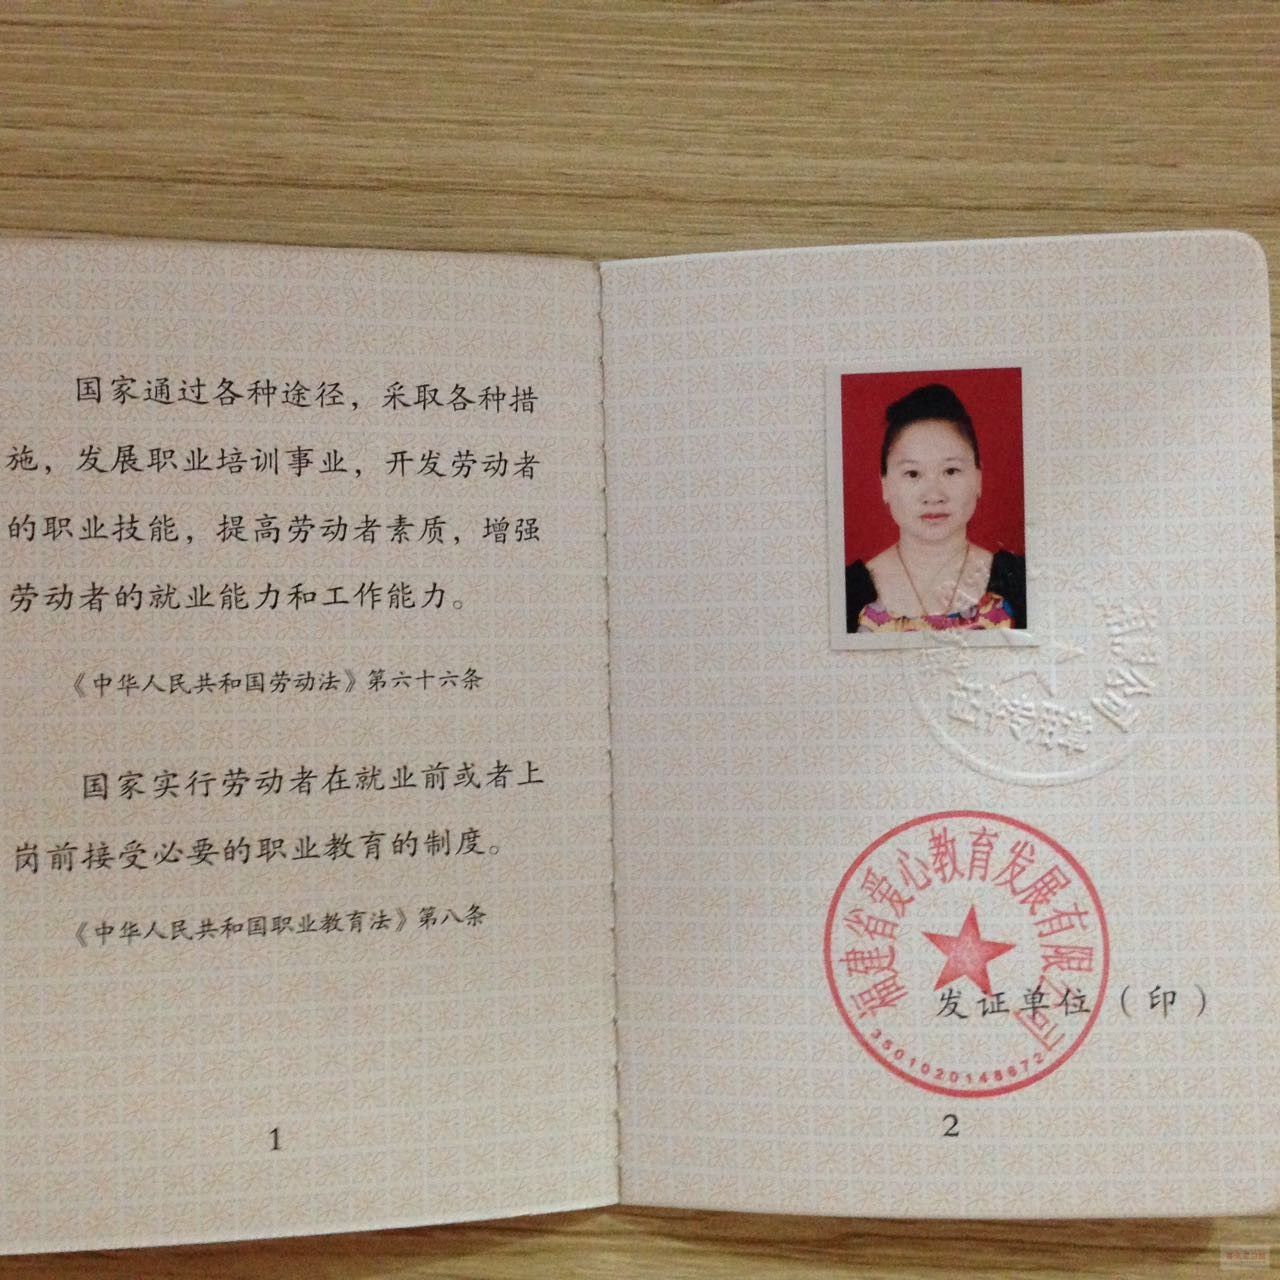 国家通过各种途径，采取各种措
施，发展职业培训事业，开发劳动者
的职业技能，提高劳动者素质，增强
劳动者的就业能力和工作能力。
《中华人民共和国劳动法》第六十六条
国家实行劳动者在就业前或者上
岗前接受必要的职业教育的制度。
《中华人民共和国职业教育法》第八条
1
福建省爱心教育发展有限公司
发证单位（印）
3501020148672
2